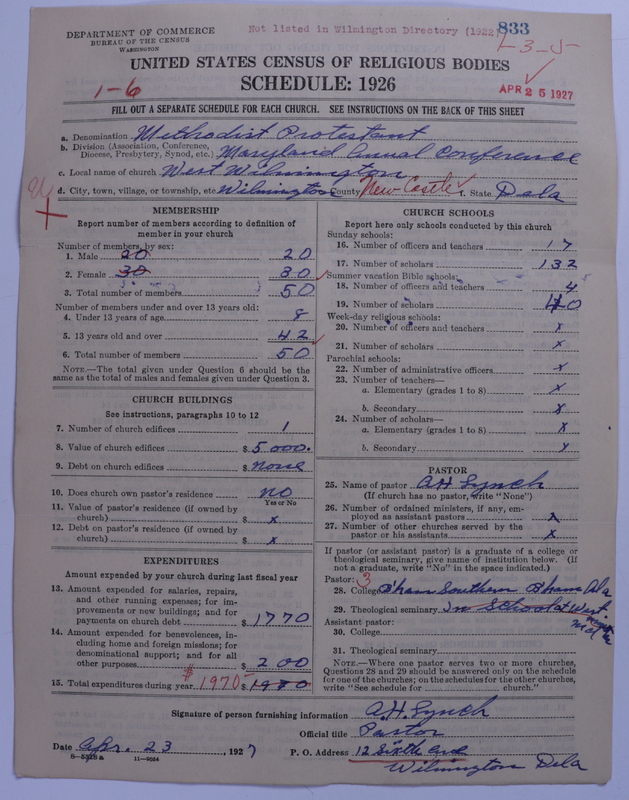 DEPARTMENT OF COMMERCE
BUREAU OF THE CENSUS
WASHINGTON
Not listed in Wilmington Directory (1922)
833
1-3-5
UNITED STATES CENSUS OF RELIGIOUS BODIES
SCHEDULE: 1926
1-6
APR 25 1927
FILL OUT A SEPARATE SCHEDULE FOR EACH CHURCH. SEE INSTRUCTIONS ON THE BACK OF THIS SHEET
a. Denomination Methodist Protestant
b. Division (Association, Conference, Diocese, Presbytery, Synod, etc.) Maryland Annual Conference
c. Local name of church West Wilmington
d. City, town, village, or township, etc. Wilmington County New Castle f. State Dela
MEMBERSHIP
Report number of members according to definition of
member in your church
Number of members, by sex:
1. Male 20 20
2. Female 30 30
3. Total number of members 50
Number of members under and over 13 years old:
4. Under 13 years of age 8
5. 13 years old and over 42
6. Total number of members 50
NOTE.—The total given under Question 6 should be the
same as the total of males and females given under Question 3.
CHURCH BUILDINGS
See instructions, paragraphs 10 to 12
7. Number of church edifices 1
8. Value of church edifices $ 5000.
9. Debt on church edifices $ none
10. Does church own pastor's residence no
Yes or No
11. Value of pastor's residence (if owned by
church) $ x
12. Debt on pastor's residence (if owned by
church) $ x
EXPENDITURES
Amount expended by your church during last fiscal year
13. Amount expended for salaries, repairs,
and other running expenses; for im-
provements or new buildings; and for
payments on church debt $ 1770
14. Amount expended for benevolences, in-
cluding home and foreign missions; for
denominational support; and for all
other purposes $ 200
15. Total expenditures during year $ 1970 $ 1980
CHURCH SCHOOLS
Report here only schools conducted by this church
Sunday schools:
16. Number of officers and teachers 17
17. Number of scholars 132
Summer vacation Bible schools:
18. Number of officers and teachers 4
19. Number of scholars 40
Week-day religious schools:
20. Number of officers and teachers x
21. Number of scholars x
Parochial schools:
22. Number of administrative officers x
23. Number of teachers—
a. Elementary (grades 1 to 8) x
b. Secondary x
24. Number of scholars—
a. Elementary (grades 1 to 8) x
b. Secondary x
PASTOR
25. Name of pastor A.H. Lynch
(If church has no pastor, write "None")
26. Number of ordained ministers, if any, em-
ployed as assistant pastors x
27. Number of other churches served by the
pastor or his assistants x
If pastor (or assistant pastor) is a graduate of a college or
theological seminary, give name of institution below. (If
not a graduate, write "No" in the space indicated.)
Pastor: 3
28. College B'ham Southern Bham Ala
29. Theological seminary In School at West
Assistant pastor:
30. College
31. Theological seminary
NOTE.—Where one pastor serves two or more churches,
Questions 28 and 29 should be answered only on the schedule
for one of the churches; on the schedules for the other churches,
write "See schedule for church."
Signature of person furnishing information A.H. Lynch
Official title Pastor
Date Apr. 23, 1927 P. O. Address 12 Sixth Ave
Wilmington Dela
11-9084